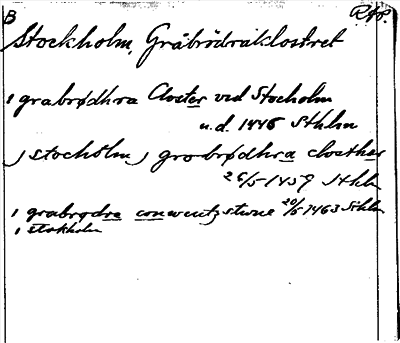 B RAp.
Stockholm, Gråbrödraklostret
i grabrødhra Closter ved Stocholm
u.d. 1446 Sthlm
j stocholm j grabrødhra closther
26/5 1459 Sthlm
i grabrodre conwentzstwue 20/5 1463 Sthlm
i stokholm